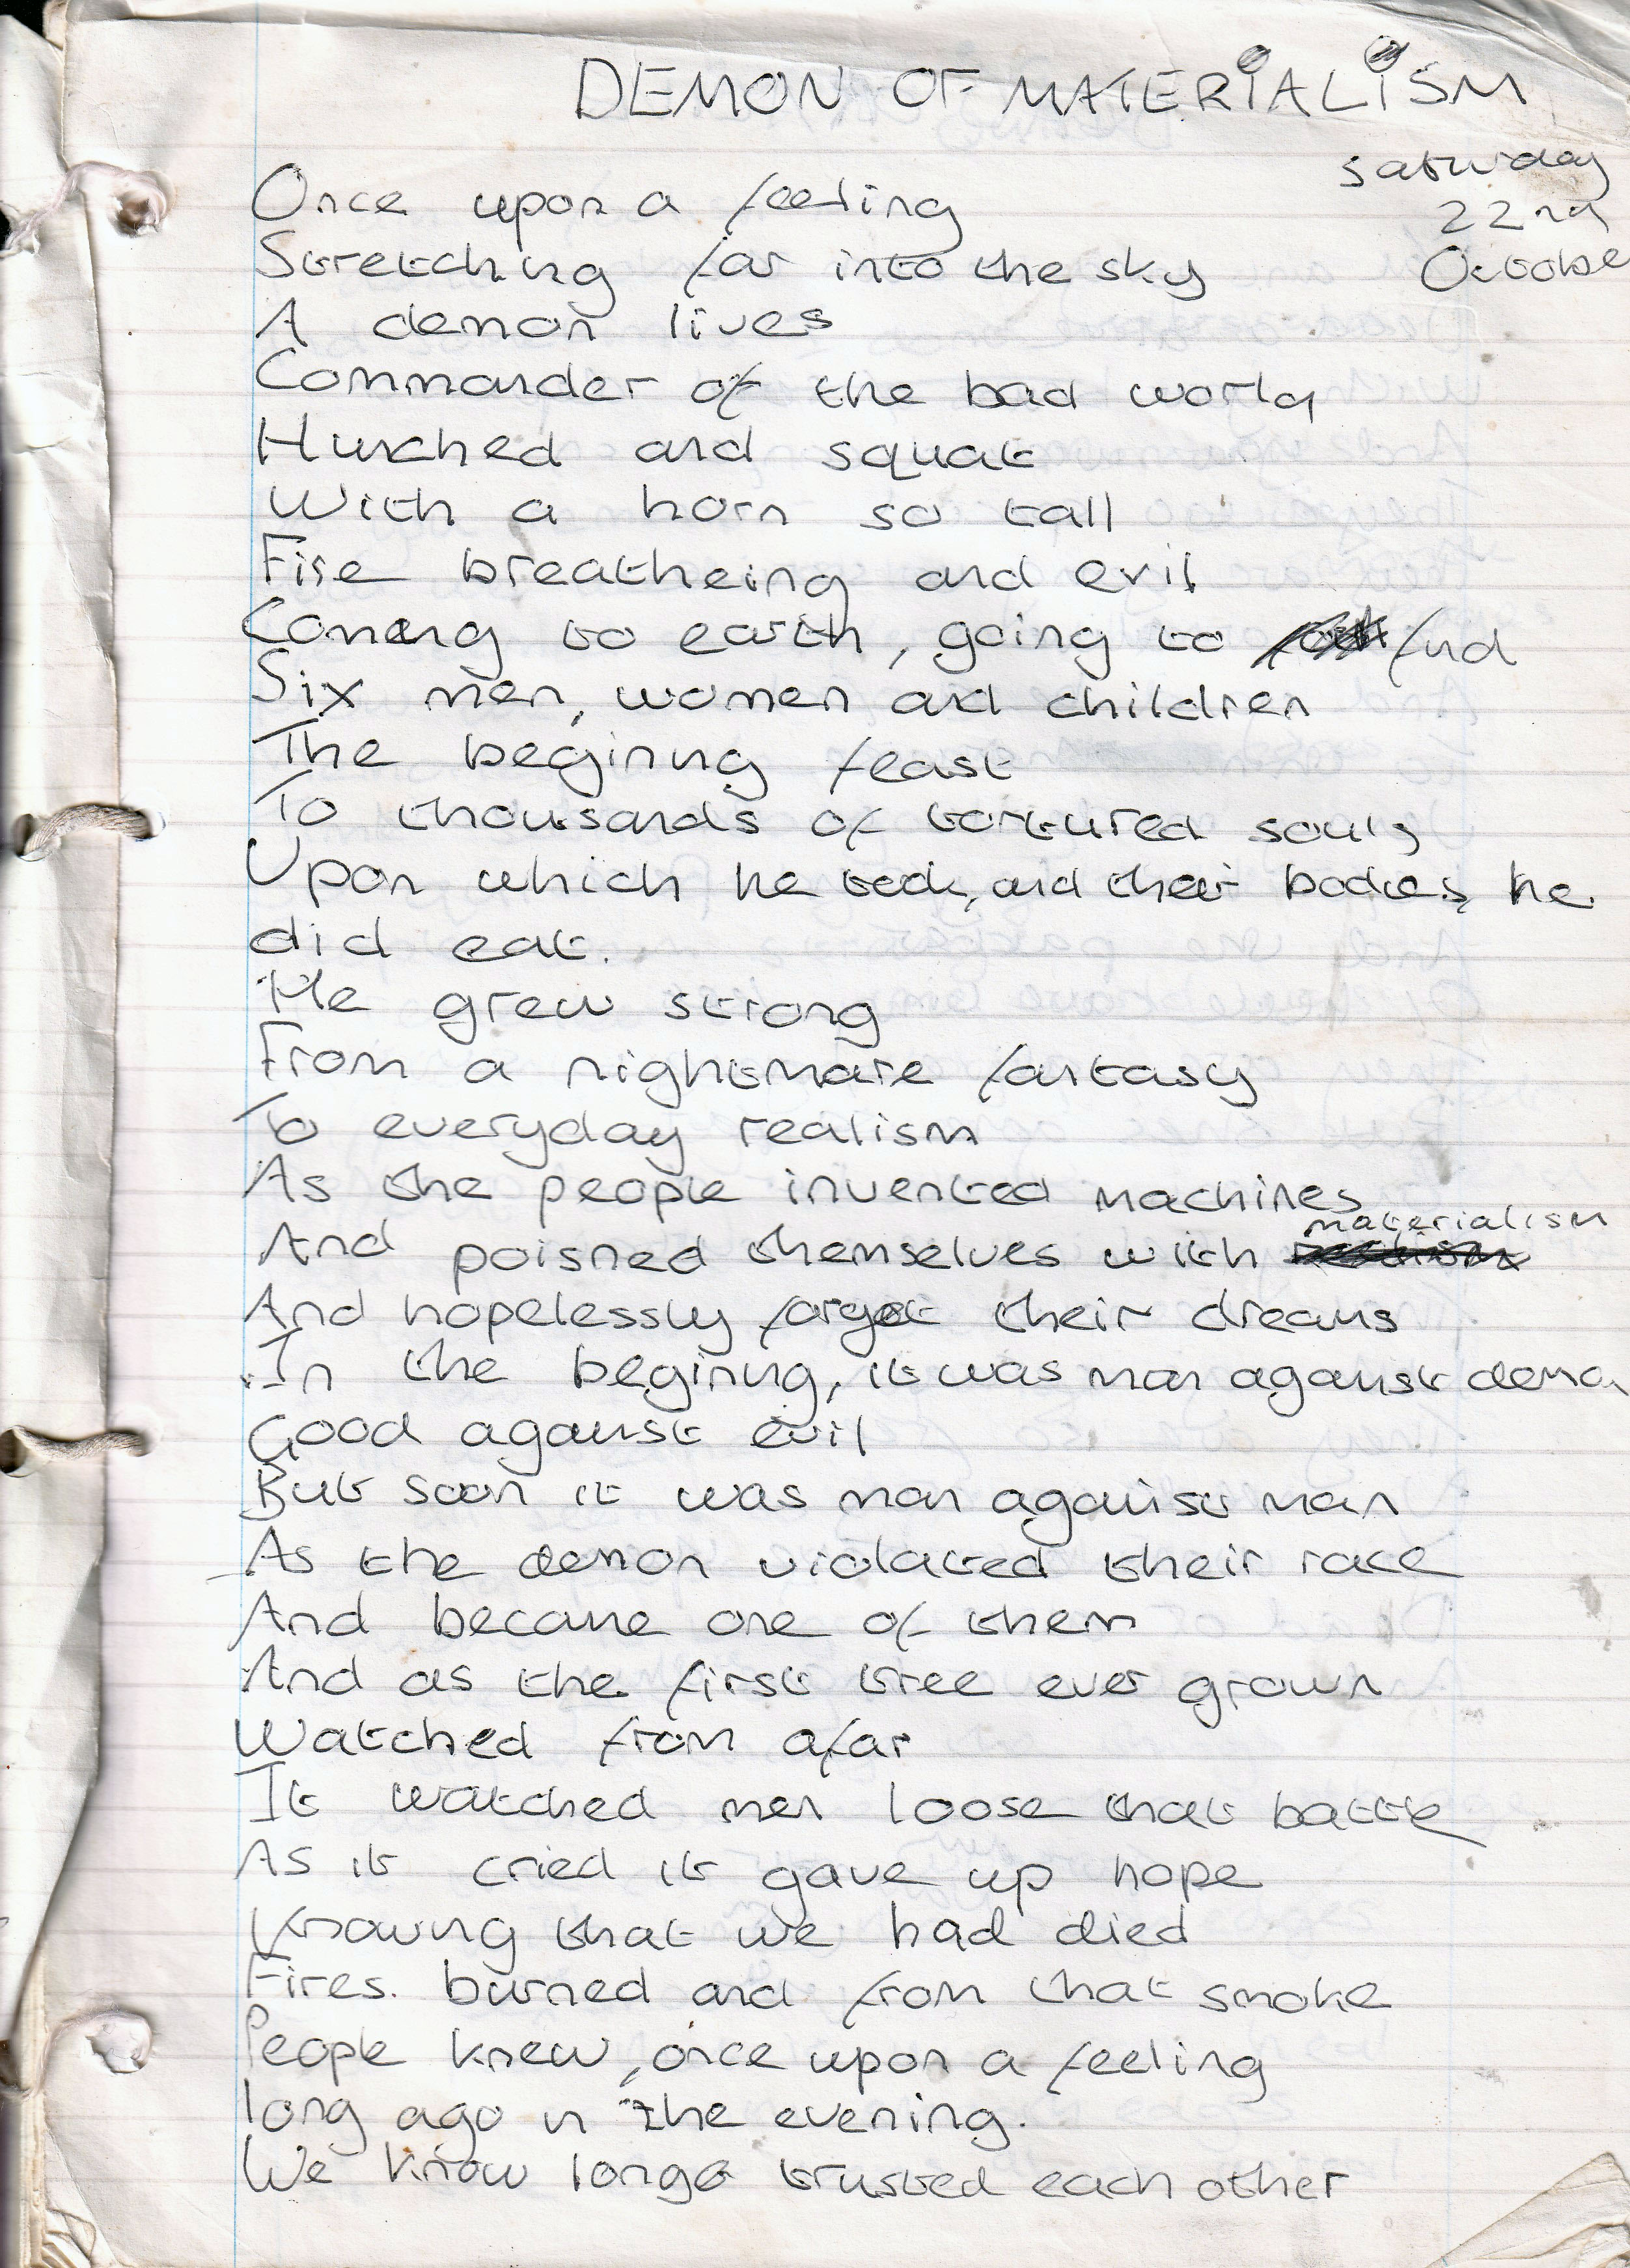 DEMON OF MATERIALISM
saturday
22nd
Octobe
Once upon a feeling
Stretching far into the sky
A demon lives
Commander of the bad world
Hunched and squat
With a horn so tall
Fire breatheing and evil
Coming to earth, going to find
Six men, women and children
The begining feast
To thousands of tortured souls
Upon which he took, and their bodies, he
did eat.
He grew strong
From a nightmare fantasy
To everyday realism
As the people invented machines
And poisned themselves with materialism
And hopelessly forgot their dreams
In the begining, it was man against demon
Good against evil
But soon it was man against man
As the demon violated their race
And became one of them
And as the first tree ever grown
Watched from afar
It watched men loose that battle
As it cried it gave up hope
Knowing that we had died
Fires. burned and from that smoke
People knew, once upon a feeling
long ago in the evening.
We know longer trusted each other